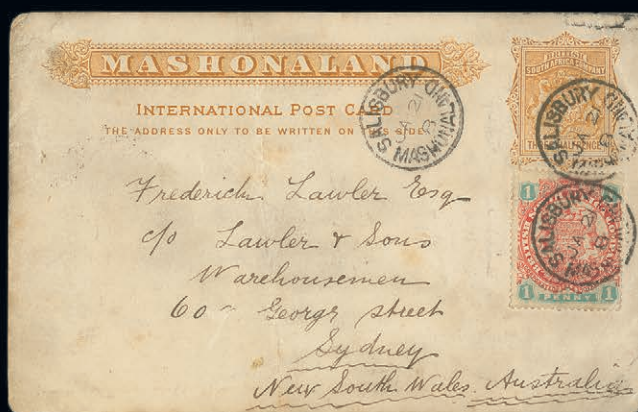 MASHONALAND
INTERNATIONAL POST CARD
THE ADDRESS ONLY TO BE WRITTEN ON THIS SIDE
SOUTH AFRICA COMPANY
SALISBURY
JA 21
MASHONA
SALISBURY
JA 21
SALISBURY
JA 21
MAS
1 1
1 PENNY 1
Frederick Lawler Esq
c/o Lawler & Sons
Warehousemen
60 George street
Sydney
New South Wales. Australia